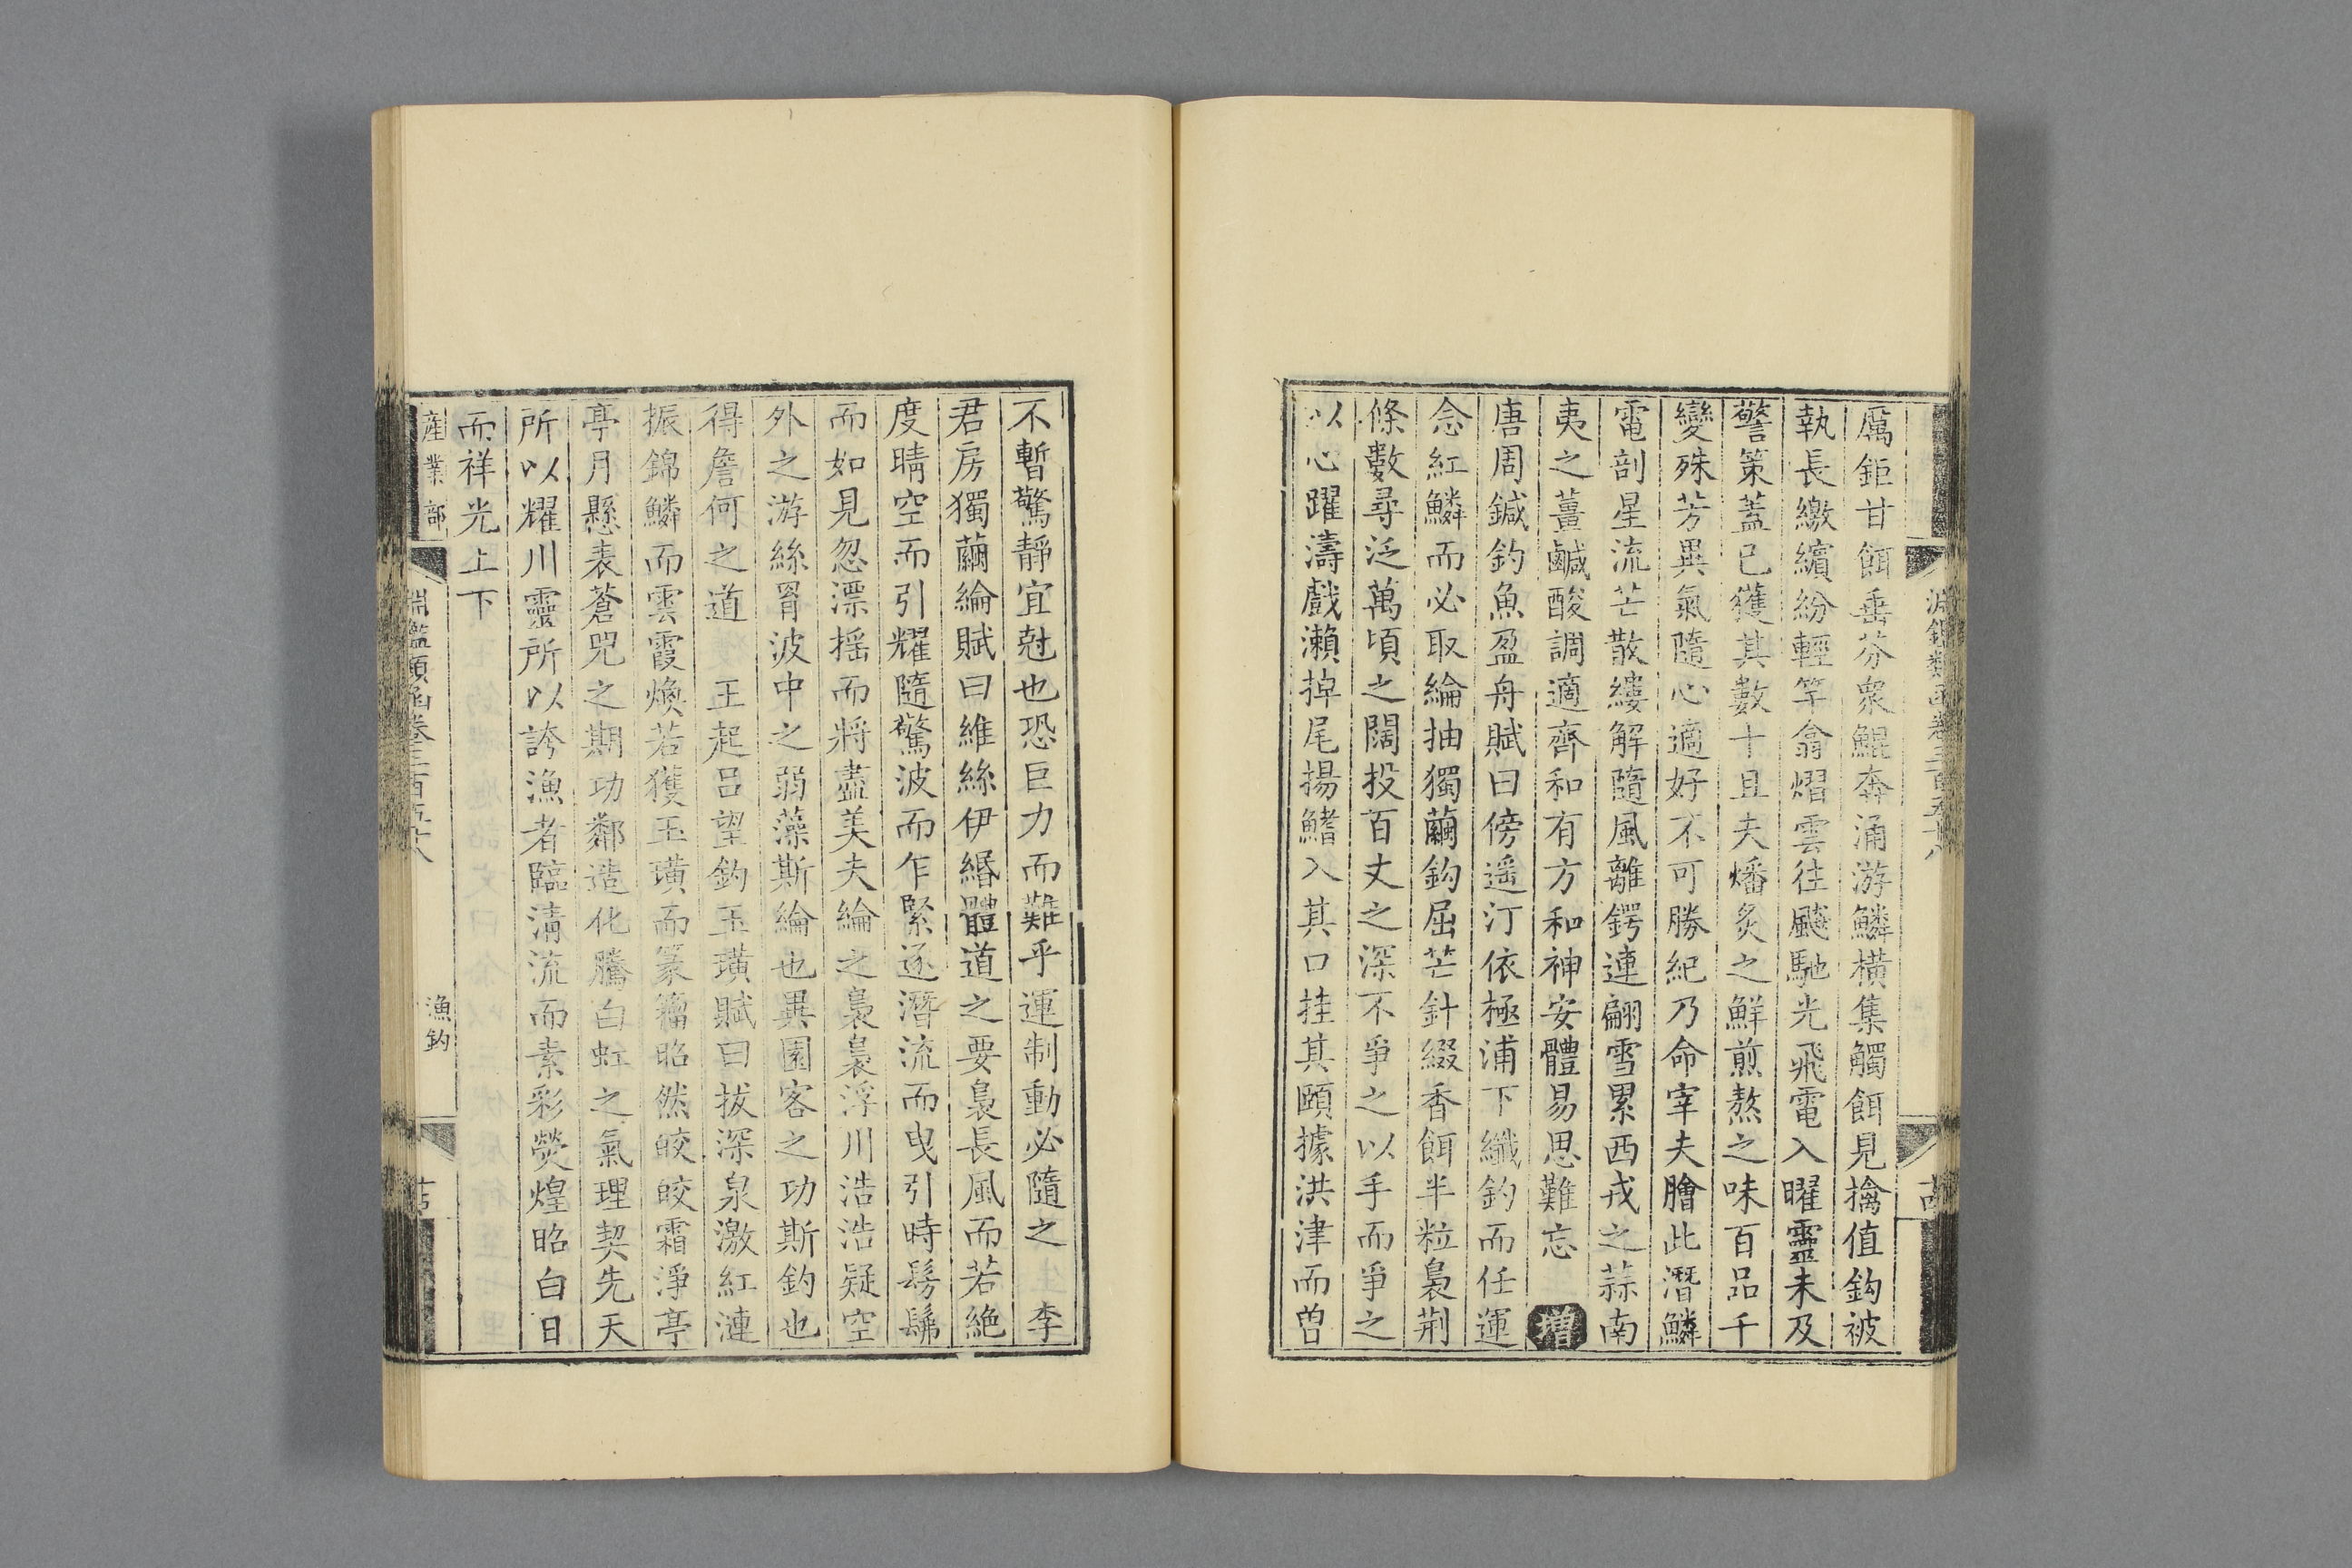 厲鉅甘餌垂芬衆鯤奔涌游鱗橫集觸餌見擒值鈎被
執長繳繽紛輕竿翕熠雲往飈馳光飛電入曜靈未及
警策蓋已獲其數十且夫燔炙之鮮煎熬之味百品千
變殊芳異氣隨心適好不可勝紀乃命宰夫膾此潛鱗
電剖星流芒散縷解隨風離鍔連翩雪累西戎之蒜南
夷之薑鹹酸調適齊和有方和神安體易思難忘 增
唐周鍼釣魚盈舟賦曰傍遥汀依極浦下纖釣而任運
念紅鱗而必取綸抽獨繭鈎屈芒針綴香餌半粒裊荆
條數尋泛萬頃之闊投百丈之深不爭之以手而爭之
以心躍濤戲瀨掉尾揚鰭入其口挂其頤據洪津而曽
不暫驚靜宜尅也恐巨力而難乎運制動必隨之 李
君房獨繭綸賦曰維絲伊緡體道之要裊長風而若絶
度晴空而引耀隨驚波而乍緊逐潛流而曳引時髣髴
而如見忽漂揺而將盡美夫綸之裊裊浮川浩浩疑空
外之游絲罥波中之弱藻斯綸也異園客之功斯釣也
得詹何之道 王起呂望釣玉璜賦曰拔深泉激紅漣
振錦鱗而雲霞煥若獲玉璜而篆籀昭然皎皎霜淨亭
亭月懸表蒼兕之期功鄰造化騰白虹之氣理契先天
所以耀川靈所以誇漁者臨清流而素彩熒煌昭白日
而祥光上下
產業部
淵鑑類函卷三百五十八
漁釣